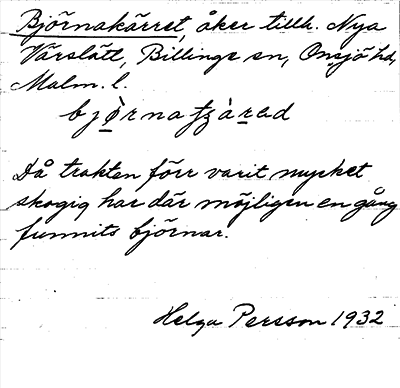 Björnakärret, åker tillh. Nya
Värslätt, Billinge sn, Onsjö hd,
Malm. l.
bjørnatʒàrad
Då trakten förr varit mycket
skogig har där möjligen en gång
funnits björnar.
Helga Persson 1932